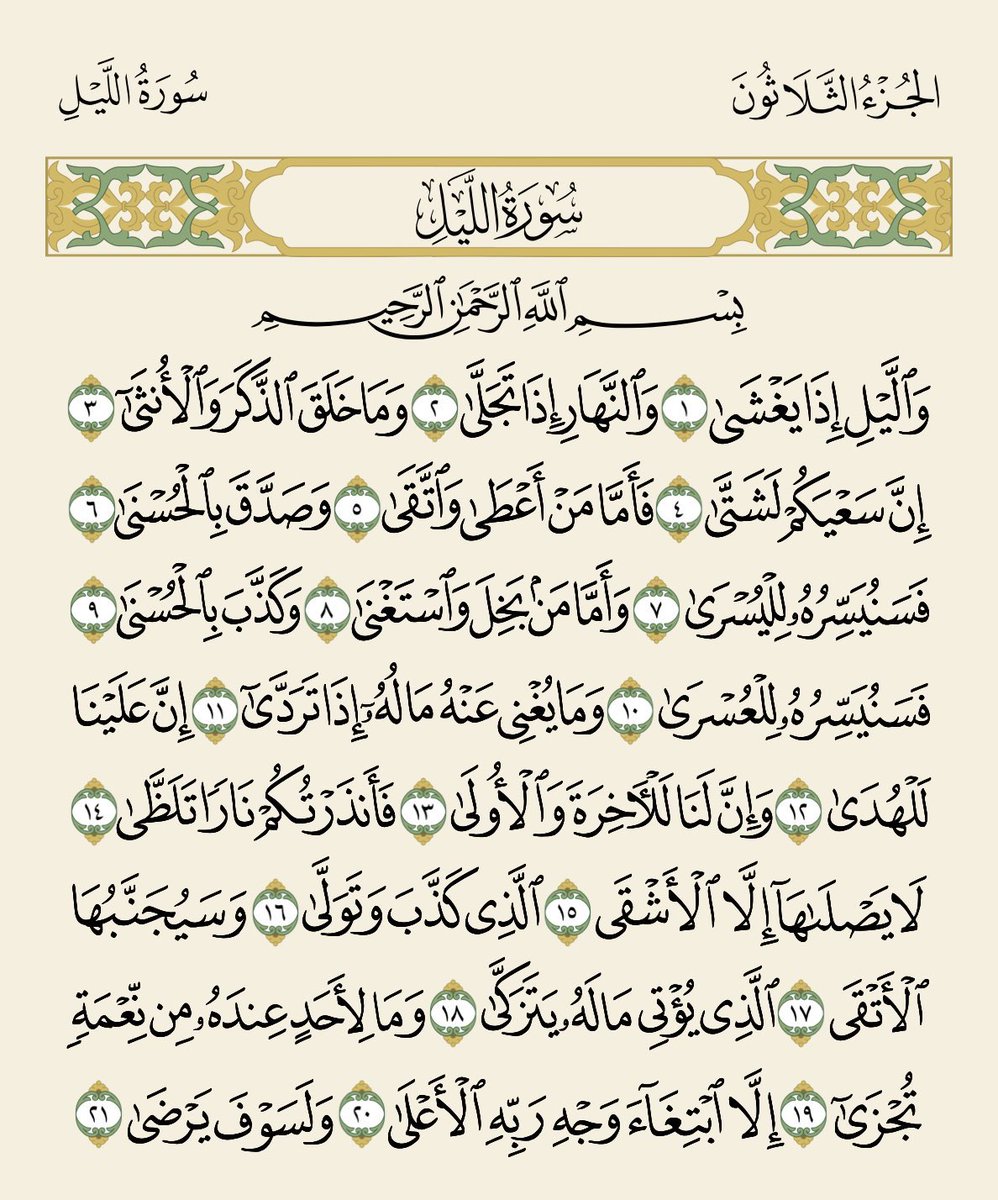 الجُزْءُ الثَّلَاثُونَ
سُورَةُ اللَّيْلِ
سُورَةُ اللَّيْلِ
بِسْمِ ٱللَّهِ ٱلرَّحْمَٰنِ ٱلرَّحِيمِ
وَٱلَّيْلِ إِذَا يَغْشَىٰ ١ وَٱلنَّهَارِ إِذَا تَجَلَّىٰ ٢ وَمَا خَلَقَ ٱلذَّكَرَ وَٱلْأُنثَىٰٓ ٣
إِنَّ سَعْيَكُمْ لَشَتَّىٰ ٤ فَأَمَّا مَنْ أَعْطَىٰ وَٱتَّقَىٰ ٥ وَصَدَّقَ بِٱلْحُسْنَىٰ ٦
فَسَنُيَسِّرُهُۥ لِلْيُسْرَىٰ ٧ وَأَمَّا مَنۢ بَخِلَ وَٱسْتَغْنَىٰ ٨ وَكَذَّبَ بِٱلْحُسْنَىٰ ٩
فَسَنُيَسِّرُهُۥ لِلْعُسْرَىٰ ١٠ وَمَا يُغْنِى عَنْهُ مَالُهُۥٓ إِذَا تَرَدَّىٰٓ ١١ إِنَّ عَلَيْنَا
لَلْهُدَىٰ ١٢ وَإِنَّ لَنَا لَلْـَٔاخِرَةَ وَٱلْأُولَىٰ ١٣ فَأَنذَرْتُكُمْ نَارًا تَلَظَّىٰ ١٤
لَا يَصْلَىٰهَآ إِلَّا ٱلْأَشْقَى ١٥ ٱلَّذِى كَذَّبَ وَتَوَلَّىٰ ١٦ وَسَيُجَنَّبُهَا
ٱلْأَتْقَى ١٧ ٱلَّذِى يُؤْتِى مَالَهُۥ يَتَزَكَّىٰ ١٨ وَمَا لِأَحَدٍ عِندَهُۥ مِن نِّعْمَةٍ
تُجْزَىٰٓ ١٩ إِلَّا ٱبْتِغَآءَ وَجْهِ رَبِّهِ ٱلْأَعْلَىٰ ٢٠ وَلَسَوْفَ يَرْضَىٰ ٢١